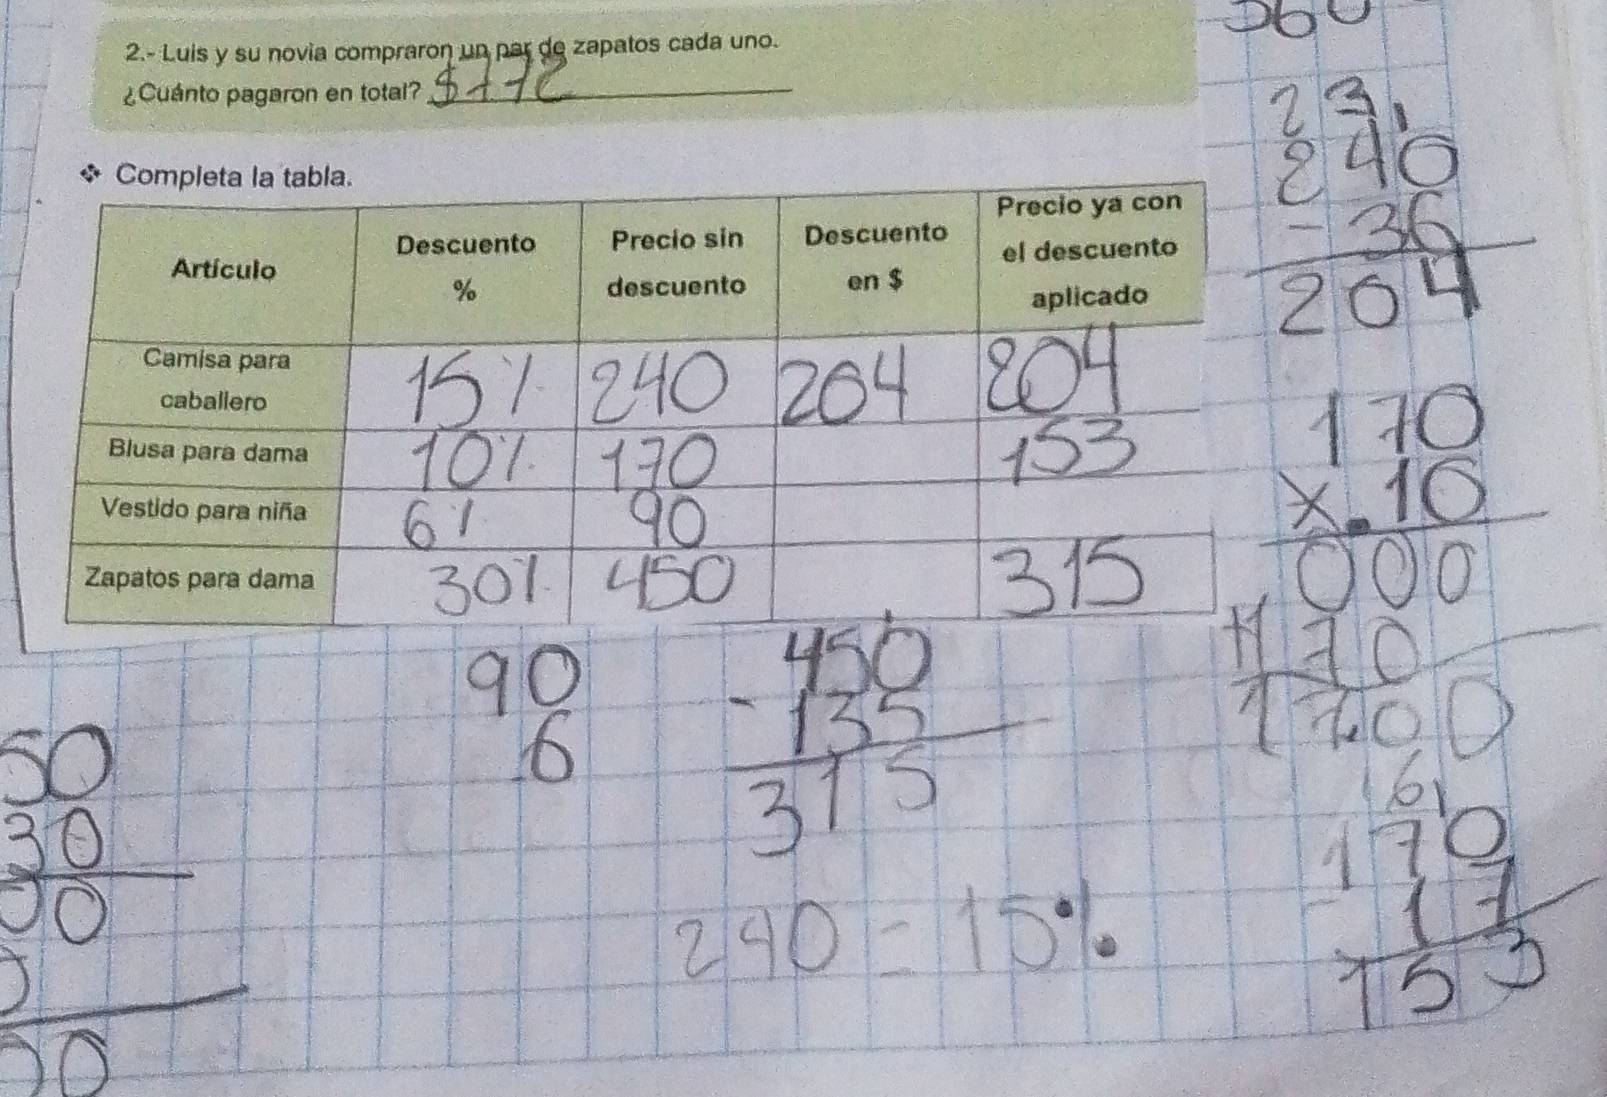 2.- Luis y su novia compraron un par de zapatos cada uno.
¿Cuánto pagaron en total? $172
❖ Completa la tabla.
Artículo Descuento % Precio sin descuento Descuento en $ Precio ya con el descuento aplicado
Camisa para caballero 15% 240 204 204
Blusa para dama 10% 170 153
Vestido para niña 6% 90
Zapatos para dama 30% 450 315
360
23,1
240
- 36
204
170
x.10
000
+170
1700
6 1
170
- 17
153
90
6
450
- 135
315
240 = 15%
50
30
00
00